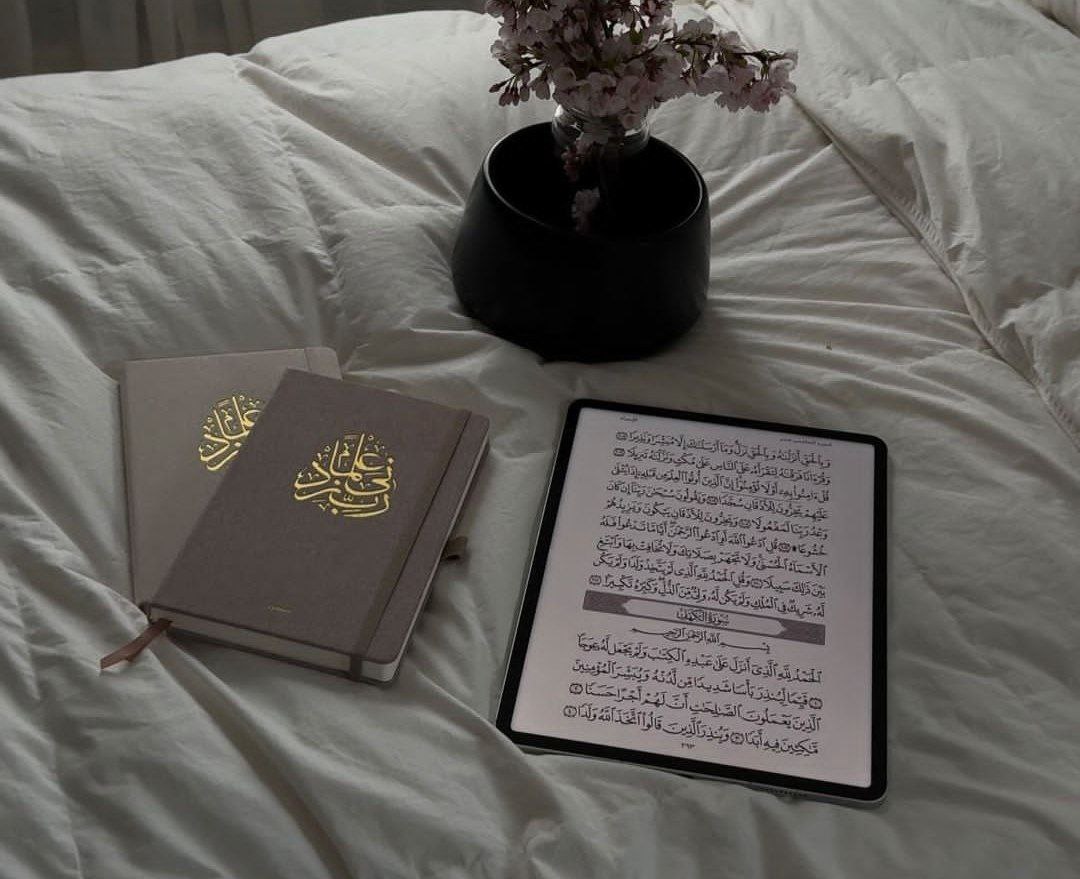 علما
زد
علما
رب زدني
الجزء الخامس عشر
الإسراء
وَبِٱلۡحَقِّ أَنزَلۡنَٰهُ وَبِٱلۡحَقِّ نَزَلَۗ وَمَآ أَرۡسَلۡنَٰكَ إِلَّا مُبَشِّرٗا وَنَذِيرٗا ١٠٥
وَقُرۡءَانٗا فَرَقۡنَٰهُ لِتَقۡرَأَهُۥ عَلَى ٱلنَّاسِ عَلَىٰ مُكۡثٖ وَنَزَّلۡنَٰهُ تَنزِيلٗا ١٠٦
قُلۡ ءَامِنُواْ بِهِۦٓ أَوۡ لَا تُؤۡمِنُوٓاْۚ إِنَّ ٱلَّذِينَ أُوتُواْ ٱلۡعِلۡمَ مِن قَبۡلِهِۦٓ إِذَا يُتۡلَىٰ
عَلَيۡهِمۡ يَخِرُّونَۤ لِلۡأَذۡقَانِۤ سُجَّدٗاۤ ١٠٧ وَيَقُولُونَ سُبۡحَٰنَ رَبِّنَآ إِن كَانَ
وَعۡدُ رَبِّنَا لَمَفۡعُولٗا ١٠٨ وَيَخِرُّونَ لِلۡأَذۡقَانِ يَبۡكُونَ وَيَزِيدُهُمۡ
خُشُوعٗا۩ ١٠٩ قُلِ ٱدۡعُواْ ٱللَّهَ أَوِ ٱدۡعُواْ ٱلرَّحۡمَٰنَۖ أَيّٗا مَّا تَدۡعُواْ فَلَهُ
ٱلۡأَسۡمَآءُ ٱلۡحُسۡنَىٰۚ وَلَا تَجۡهَرۡ بِصَلَاتِكَ وَلَا تُخَافِتۡ بِهَا وَٱبۡتَغِ
بَيۡنَ ذَٰلِكَ سَبِيلٗا ١١٠ وَقُلِ ٱلۡحَمۡدُ لِلَّهِ ٱلَّذِي لَمۡ يَتَّخِذۡ وَلَدٗا وَلَمۡ يَكُن
لَّهُۥ شَرِيكٞ فِي ٱلۡمُلۡكِ وَلَمۡ يَكُن لَّهُۥ وَلِيّٞ مِّنَ ٱلذُّلِّۖ وَكَبِّرۡهُ تَكۡبِيرَۢا ١١١
سُورَةُ الكَهۡف
بِسۡمِ ٱللَّهِ ٱلرَّحۡمَٰنِ ٱلرَّحِيمِ
ٱلۡحَمۡدُ لِلَّهِ ٱلَّذِيٓ أَنزَلَ عَلَىٰ عَبۡدِهِ ٱلۡكِتَٰبَ وَلَمۡ يَجۡعَل لَّهُۥ عِوَجَاۜ
١ قَيِّمٗا لِّيُنذِرَ بَأۡسٗا شَدِيدٗا مِّن لَّدُنۡهُ وَيُبَشِّرَ ٱلۡمُؤۡمِنِينَ
ٱلَّذِينَ يَعۡمَلُونَ ٱلصَّٰلِحَٰتِ أَنَّ لَهُمۡ أَجۡرًا حَسَنٗا ٢
مَّٰكِثِينَ فِيهِ أَبَدٗا ٣ وَيُنذِرَ ٱلَّذِينَ قَالُواْ ٱتَّخَذَ ٱللَّهُ وَلَدٗا ٤
٢٩٣